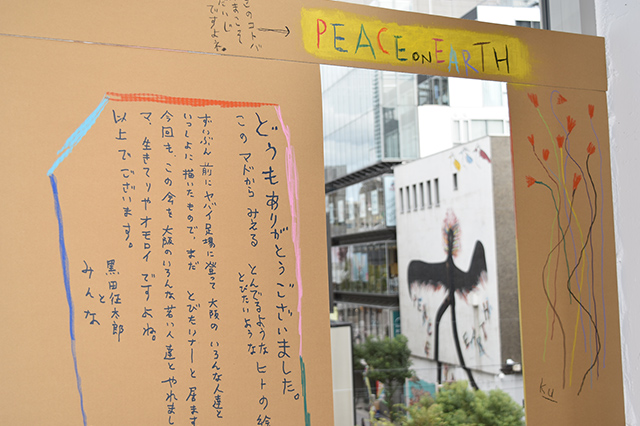 このコトバ
まこそ
だいじ
ですよね。
PEACE ON EARTH
どうもありがとうございました。
このマドから みえる とんでるような ヒトの絵
とびたいような
ずいぶん前にヤバイ足場に登って 大阪の いろんな人達と
いっしょに描いたもので、まだ とびたいナーと 居ます
今回も、この会を 大阪のいろんな若い人達と やれまし
マ、生きてりゃオモロイ ですよね。
以上でございます。
黒田征太郎
と
みんな
PEACE
EARTH
KU